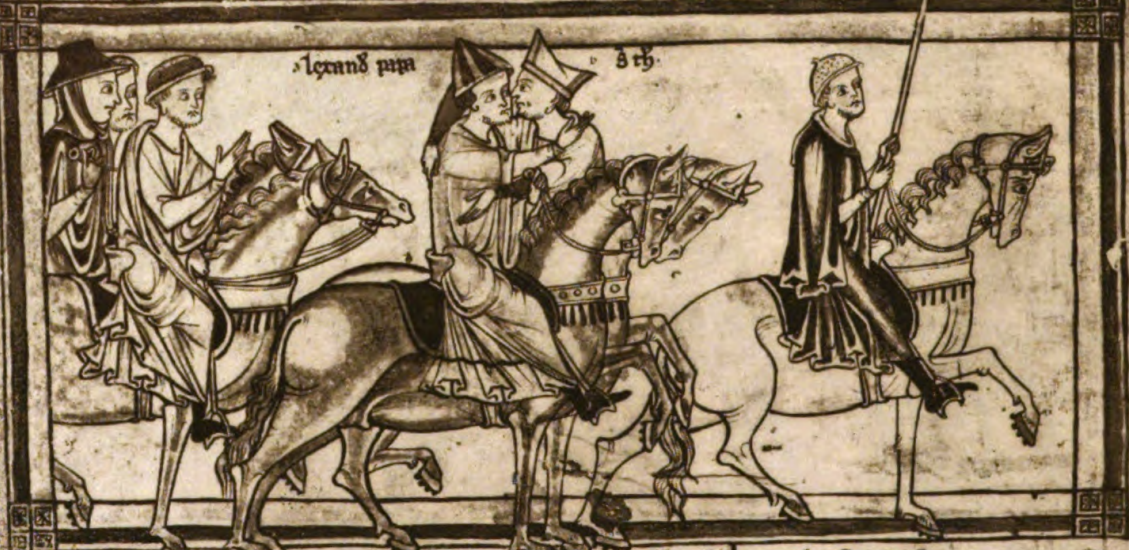 lexand papa
S th.